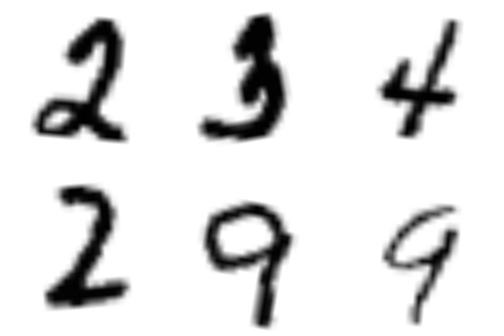 2 3 4
2 9 9